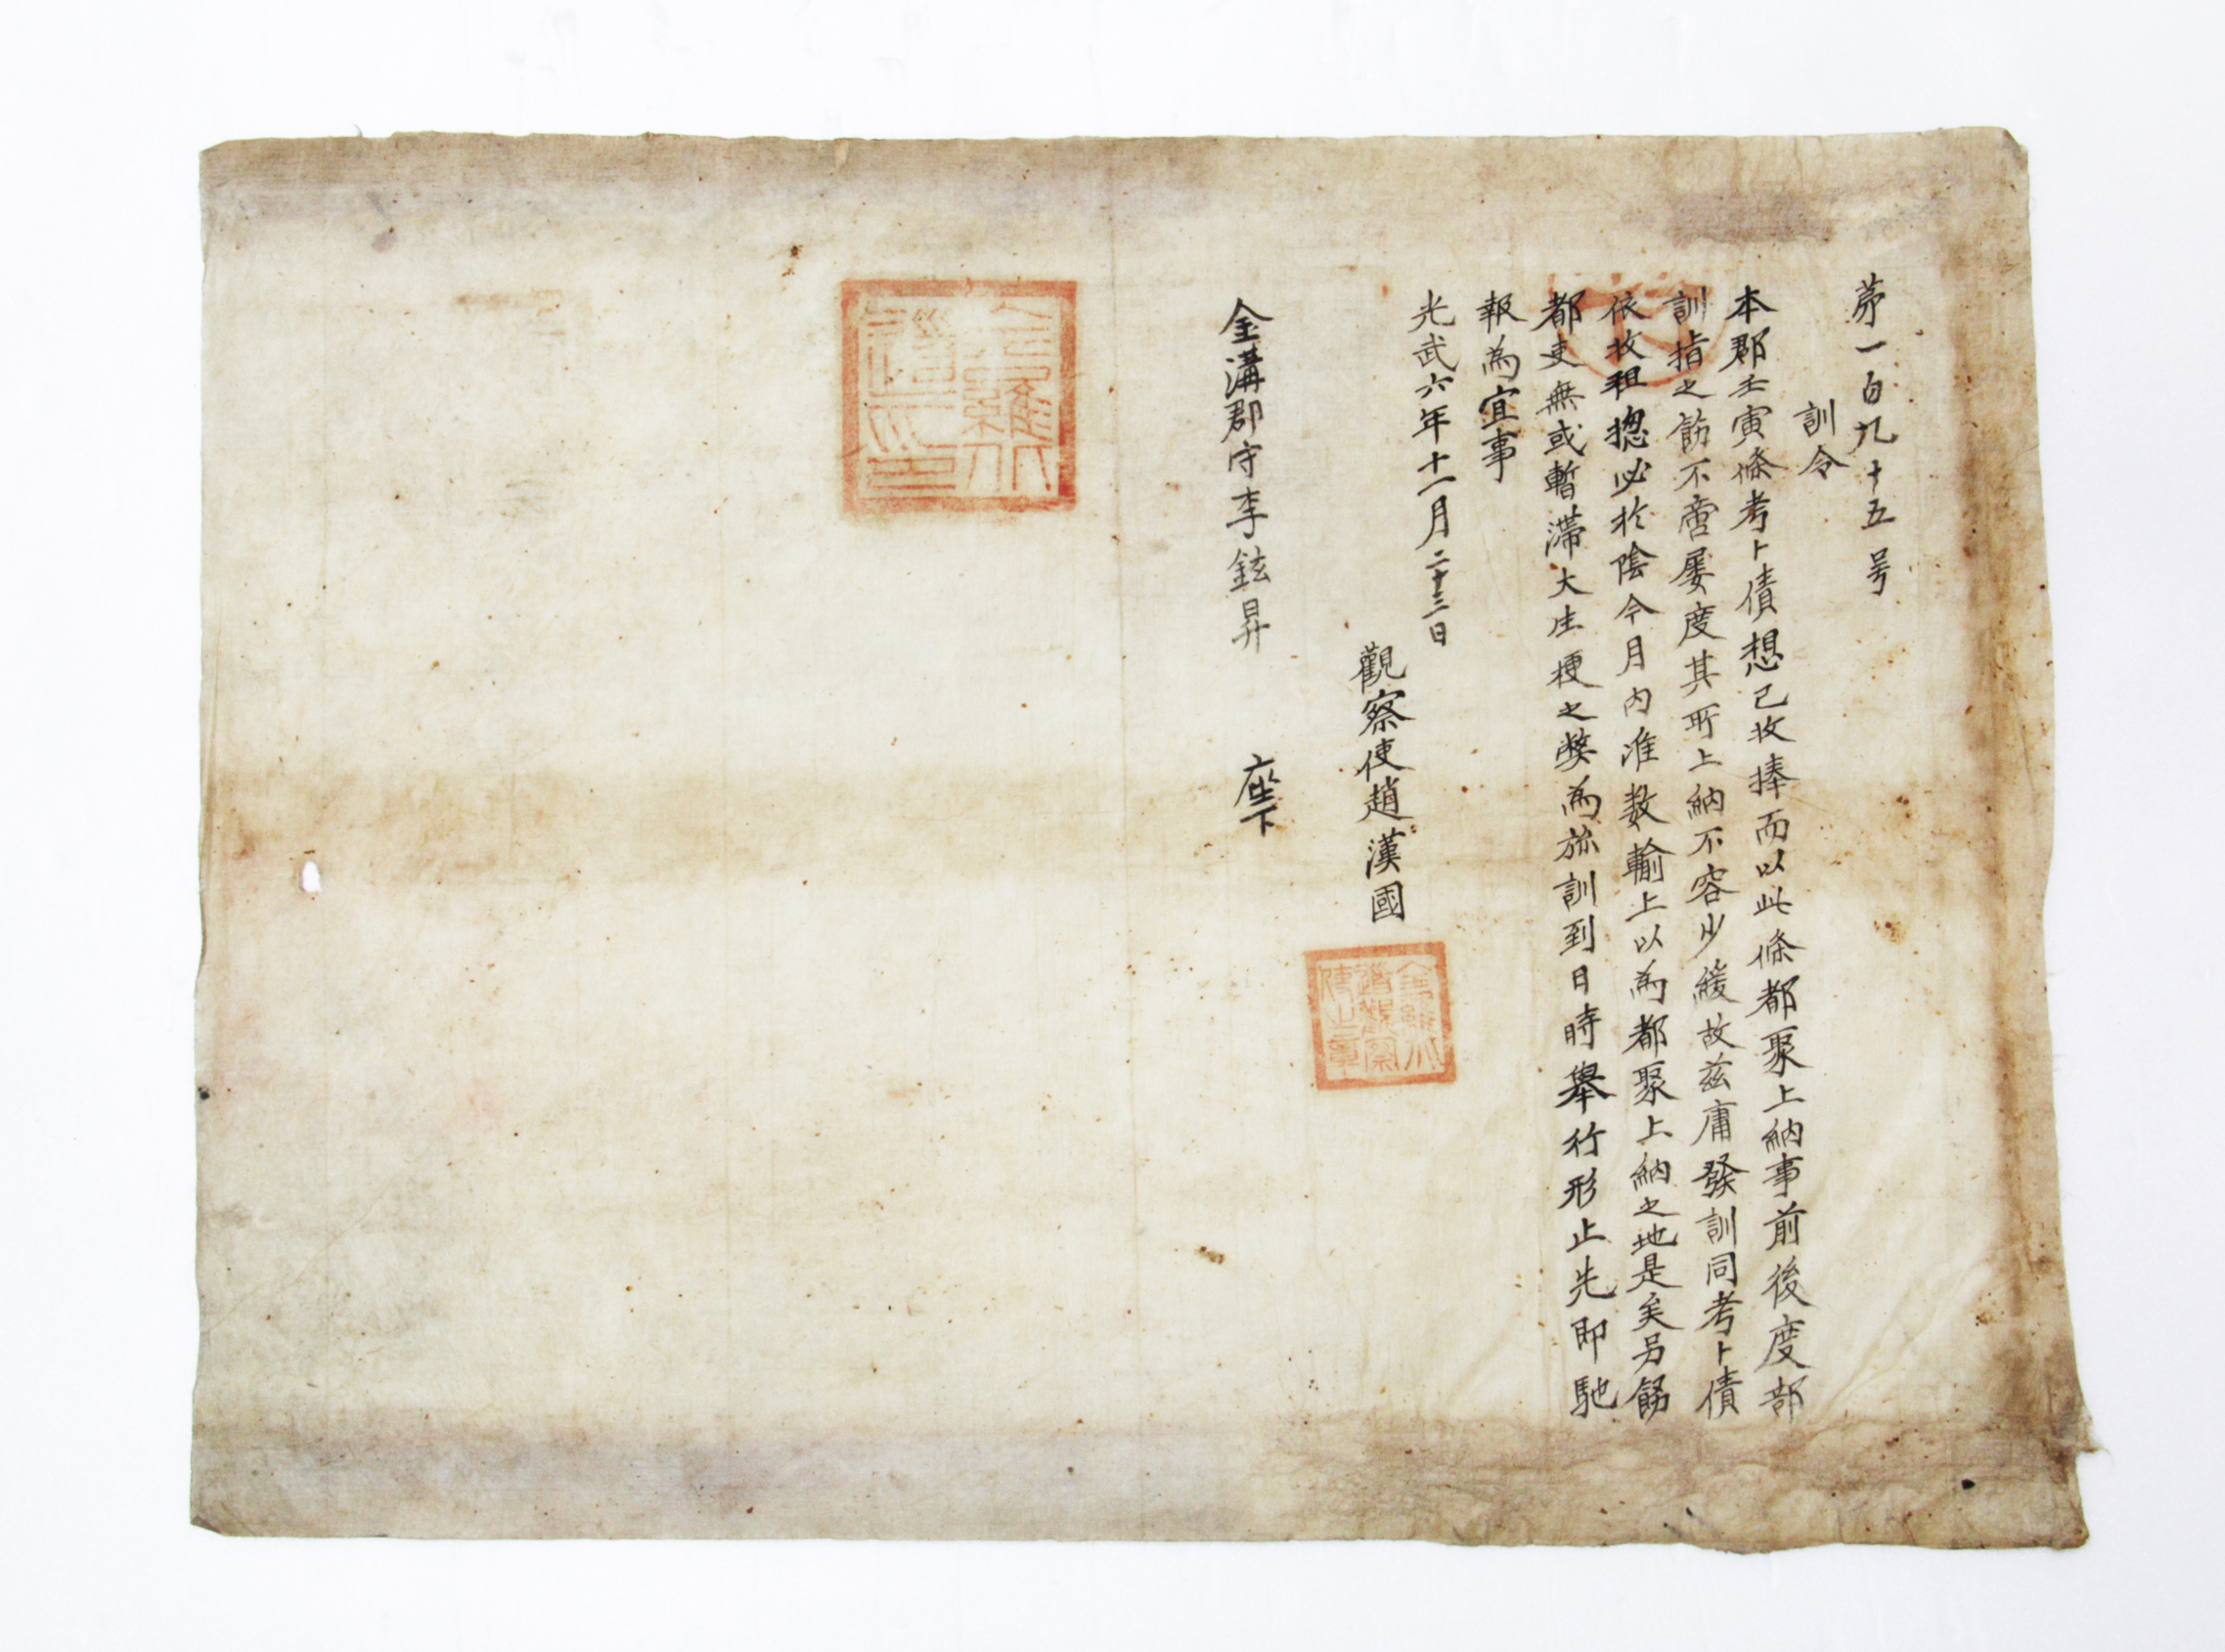 苐一百九十五号
訓令
本郡壬寅條考卜債想已收捧而以此條都聚上納事前後度部
訓指之飭不啻屢度其所上納不容少緩故玆庸發訓同考卜債
依收租摠必於陰今月內准数輸上以爲都聚上納之地是矣另飭
都吏無或暫滯大生梗之弊爲旀訓到日時擧行形止先卽馳
報爲宜事
光武六年十一月二十三日
觀察使趙漢國
全羅北道觀察使之章
金溝郡守李鉉昇 座下
全羅北道之印